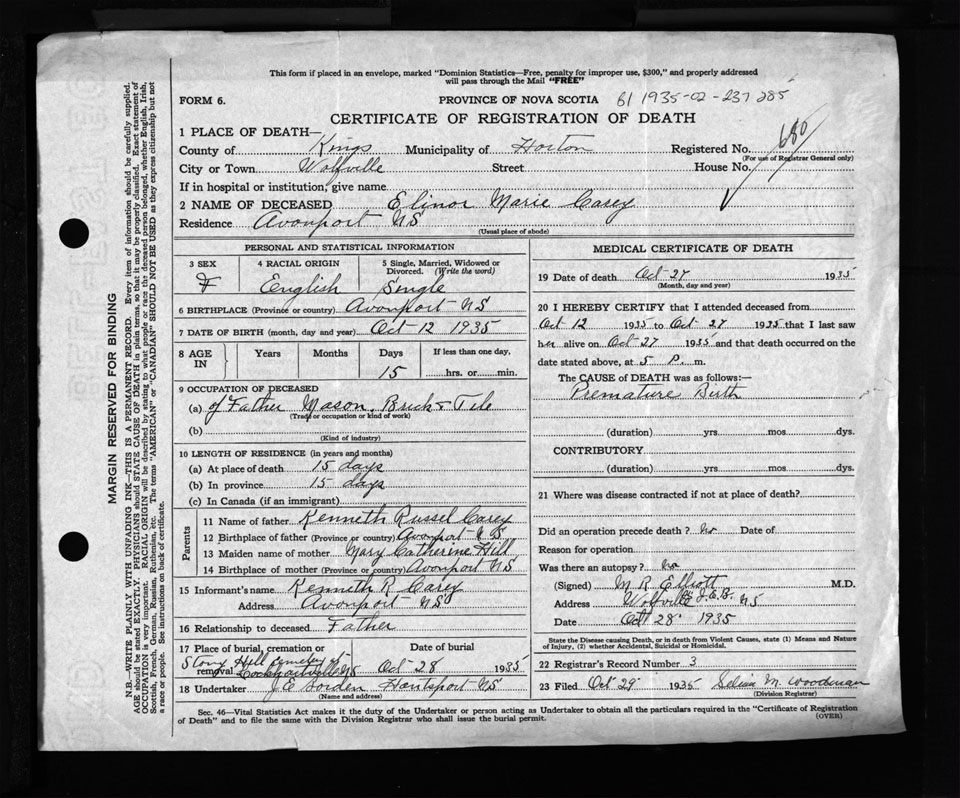 This form if placed in an envelope, marked "Dominion Statistics—Free, penalty for improper use, $300," and properly addressed
will pass through the Mail "FREE"
FORM 6.
PROVINCE OF NOVA SCOTIA 61 1935-02-237 285
CERTIFICATE OF REGISTRATION OF DEATH
1 PLACE OF DEATH—
County of Kings Municipality of Horton Registered No. 680
(For use of Registrar General only)
City or Town Wolfville Street House No.
If in hospital or institution, give name
2 NAME OF DECEASED Elinor Marie Casey
Residence Avonport NS
(Usual place of abode)
PERSONAL AND STATISTICAL INFORMATION
3 SEX 4 RACIAL ORIGIN 5 Single, Married, Widowed or
Divorced. (Write the word)
F English Single
6 BIRTHPLACE (Province or country) Avonport NS
7 DATE OF BIRTH (month, day and year) Oct 12 1935
8 AGE IN Years Months Days If less than one day,
15 hrs. or min.
9 OCCUPATION OF DECEASED
(a) of Father Mason, Brick & Tile
(Trade or occupation or kind of work)
(b)
(Kind of industry)
10 LENGTH OF RESIDENCE (in years and months)
(a) At place of death 15 days
(b) In province 15 days
(c) In Canada (if an immigrant)
Parents
11 Name of father Kenneth Russel Casey
12 Birthplace of father (Province or country) Avonport N S
13 Maiden name of mother Mary Catherine Hill
14 Birthplace of mother (Province or country) Avonport NS
15 Informant's name Kenneth R Casey
Address Avonport NS
16 Relationship to deceased Father
17 Place of burial, cremation or Date of burial
Stony Hill cemetery
removal Lockhartville NS Oct-28 1935
18 Undertaker Hantsport NS
(Name and address)
MEDICAL CERTIFICATE OF DEATH
19 Date of death Oct 27 1935
(Month, day and year)
20 I HEREBY CERTIFY that I attended deceased from
Oct 12 1935 to Oct 27 1935 that I last saw
her alive on Oct 27 1935 and that death occurred on the
date stated above, at 5 P. m.
The CAUSE OF DEATH was as follows:—
Premature Birth
(duration) yrs mos dys.
CONTRIBUTORY
(duration) yrs. mos. dys.
21 Where was disease contracted if not at place of death?
Did an operation precede death? no Date of
Reason for operation
Was there an autopsy? no
(Signed) M R Elliott M.D.
Address Wolfville NS
Date Oct 28 1935
State the Disease causing Death, or in death from Violent Causes, state (1) Means and Nature
of Injury, (2) whether Accidental, Suicidal or Homicidal.
22 Registrar's Record Number 3
23 Filed Oct 29 1935 M. Woodman
(Division Registrar)
Sec. 46—Vital Statistics Act makes it the duty of the Undertaker or person acting as Undertaker to obtain all the particulars required in the "Certificate of Registration
of Death" and to file the same with the Division Registrar who shall issue the burial permit.
(OVER)
MARGIN RESERVED FOR BINDING
N.B.—WRITE PLAINLY WITH UNFADING INK—THIS IS A PERMANENT RECORD. Every item of information should be carefully supplied.
AGE should be stated EXACTLY. PHYSICIANS should STATE CAUSE OF DEATH in plain terms, so that it may be properly classified. Exact statement of
OCCUPATION is very important. RACIAL ORIGIN will be described by stating to what people or race the deceased person belonged, whether English, Irish,
Scottish, French, German, Russian, Ruthenian, etc. The terms "AMERICAN" or "CANADIAN" SHOULD NOT BE USED as they express citizenship but not
a race or people. See instructions on back of certificate.